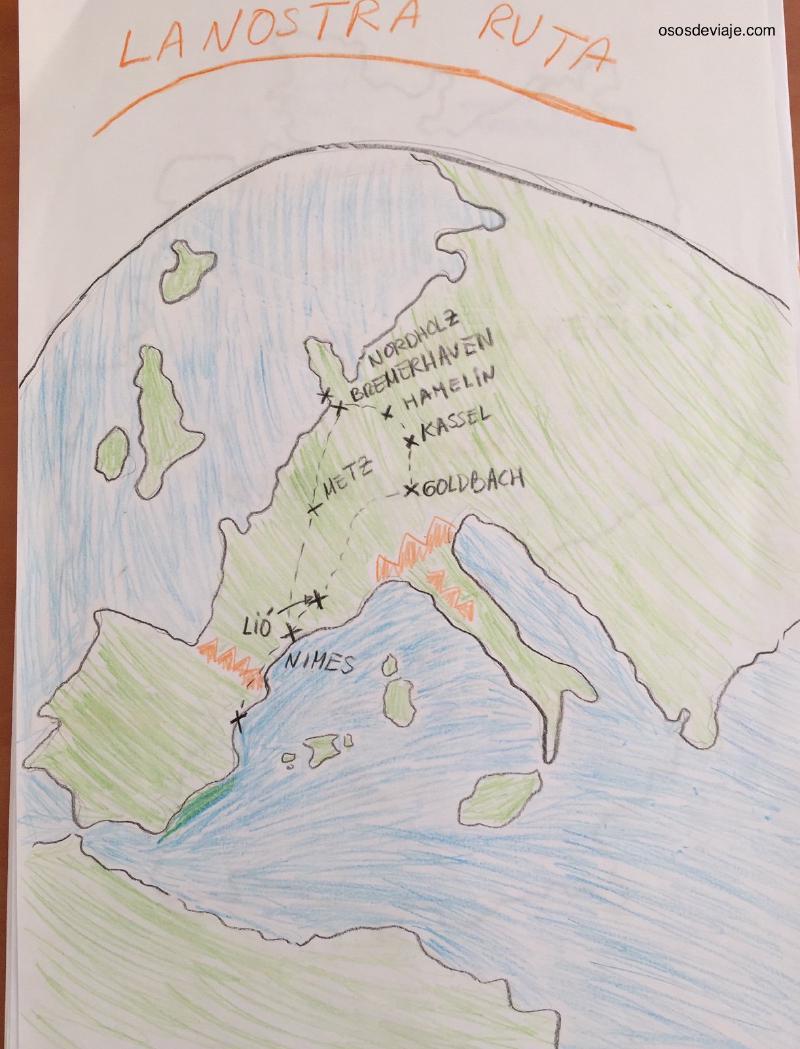 LA NOSTRA RUTA
ososdeviaje.com
NORDHOLZ
BREMERHAVEN
HAMELIN
KASSEL
METZ
GOLDBACH
LIÓ
NIMES